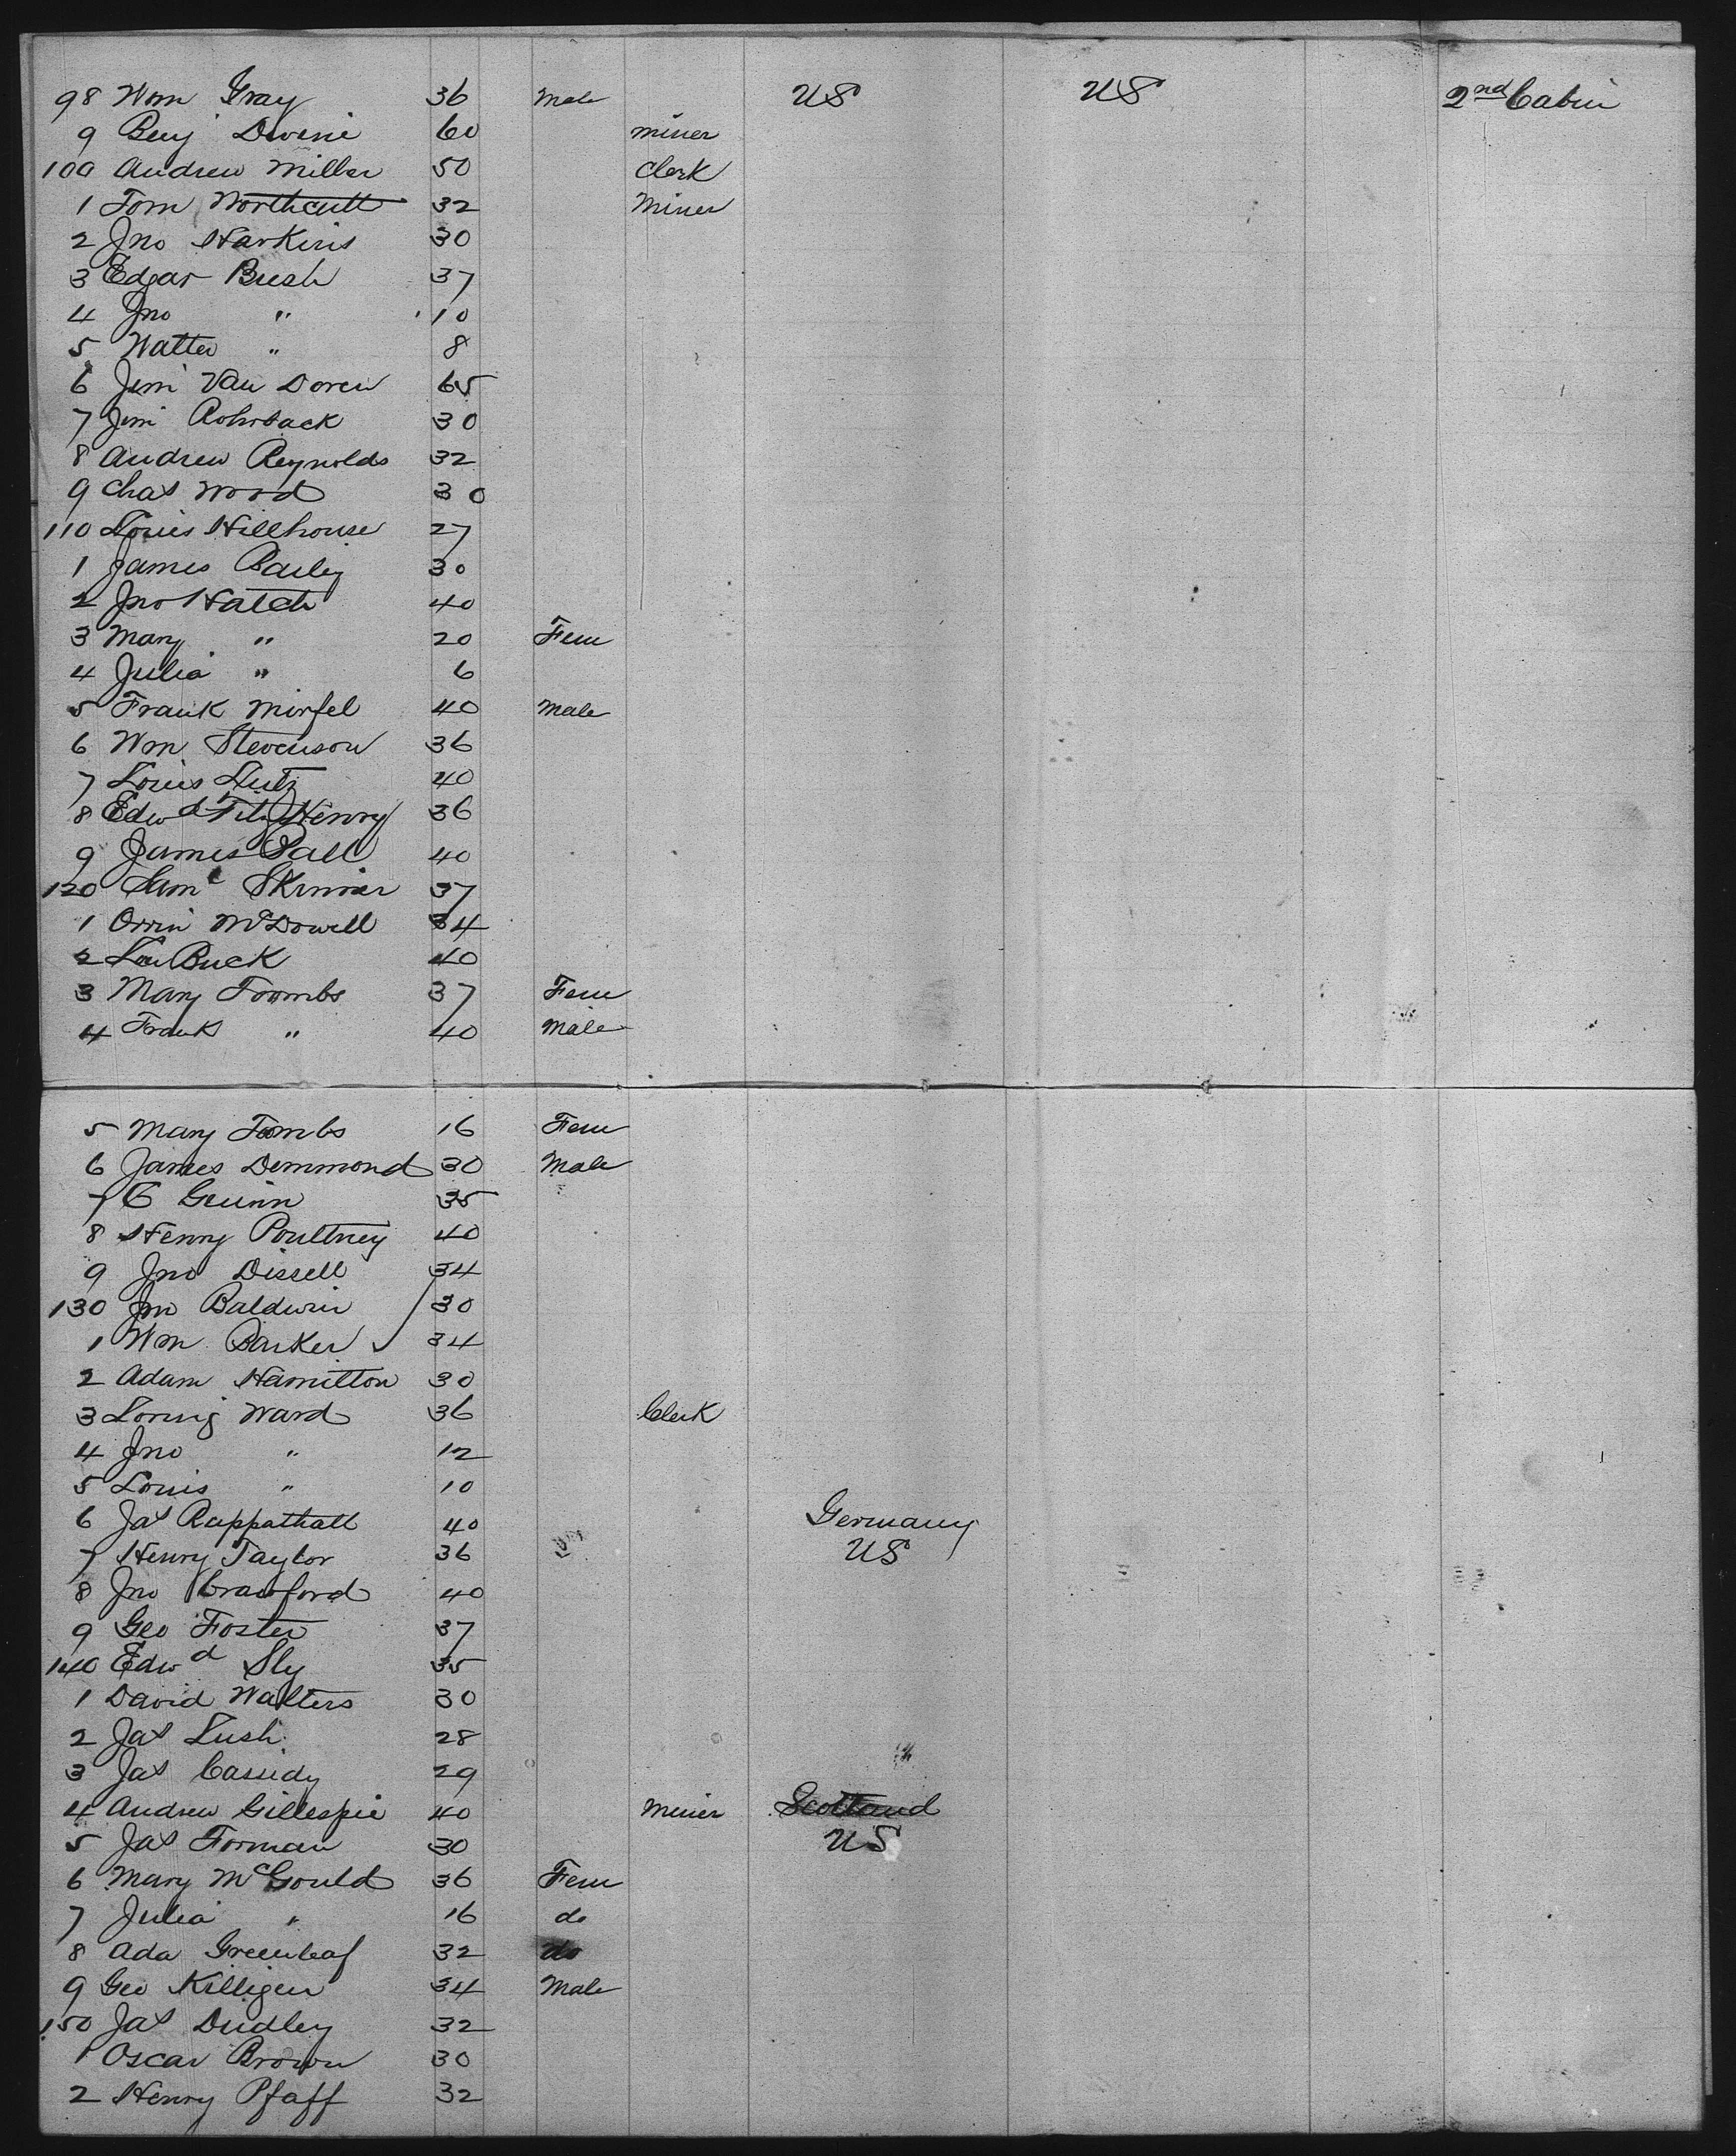 98 Wm Gray 36 Male US US 2nd Cabin
9 Benj Devine 60 miner
100 Andrew Miller 50 Clerk
1 Tom Northcutt 32 Miner
2 Jno Harkins 30
3 Edgar Bush 37
4 Jno " 10
5 Walter " 8
6 Jim Van Doren 65
7 Jim Rohrback 30
8 Andrew Reynolds 32
9 Chas Wood 30
110 Louis Hillhouse 27
1 James Bailey 30
2 Jno Hatch 40
3 Mary " 20 Fem
4 Julia " 6
5 Frank Mirfel 40 Male
6 Wm Stevenson 36
7 Louis Lutz 40
8 Edwd Fitz Henry 36
9 James Ball 40
120 Saml Skinner 37
1 Orrin McDowell 34
2 Lou Buck 40
3 Mary Toombs 37 Fem
4 Frank " 40 Male
5 Mary Toombs 16 Fem
6 James Demmond 30 Male
7 C Guinn 35
8 Henry Poultney 40
9 Jno Dissell 34
130 Jno Baldwin 30
1 Wm Barker 34
2 Adam Hamilton 30
3 Loring Ward 36 Clerk
4 Jno " 12
5 Louis " 10
6 Jas Rappathall 40 Germany
7 Henry Taylor 36 US
8 Jno Crawford 40
9 Geo Foster 37
140 Edwd Sly 35
1 David Walters 30
2 Jas Lush 28
3 Jas Cassidy 29
4 Andrew Gillespie 40 Miner Scotland
5 Jas Forman 30 US
6 Mary McGould 36 Fem
7 Julia " 16 do
8 Ada Greenleaf 32 do
9 Geo Killigen 34 Male
150 Jas Dudley 32
1 Oscar Brown 30
2 Henry Pfaff 32